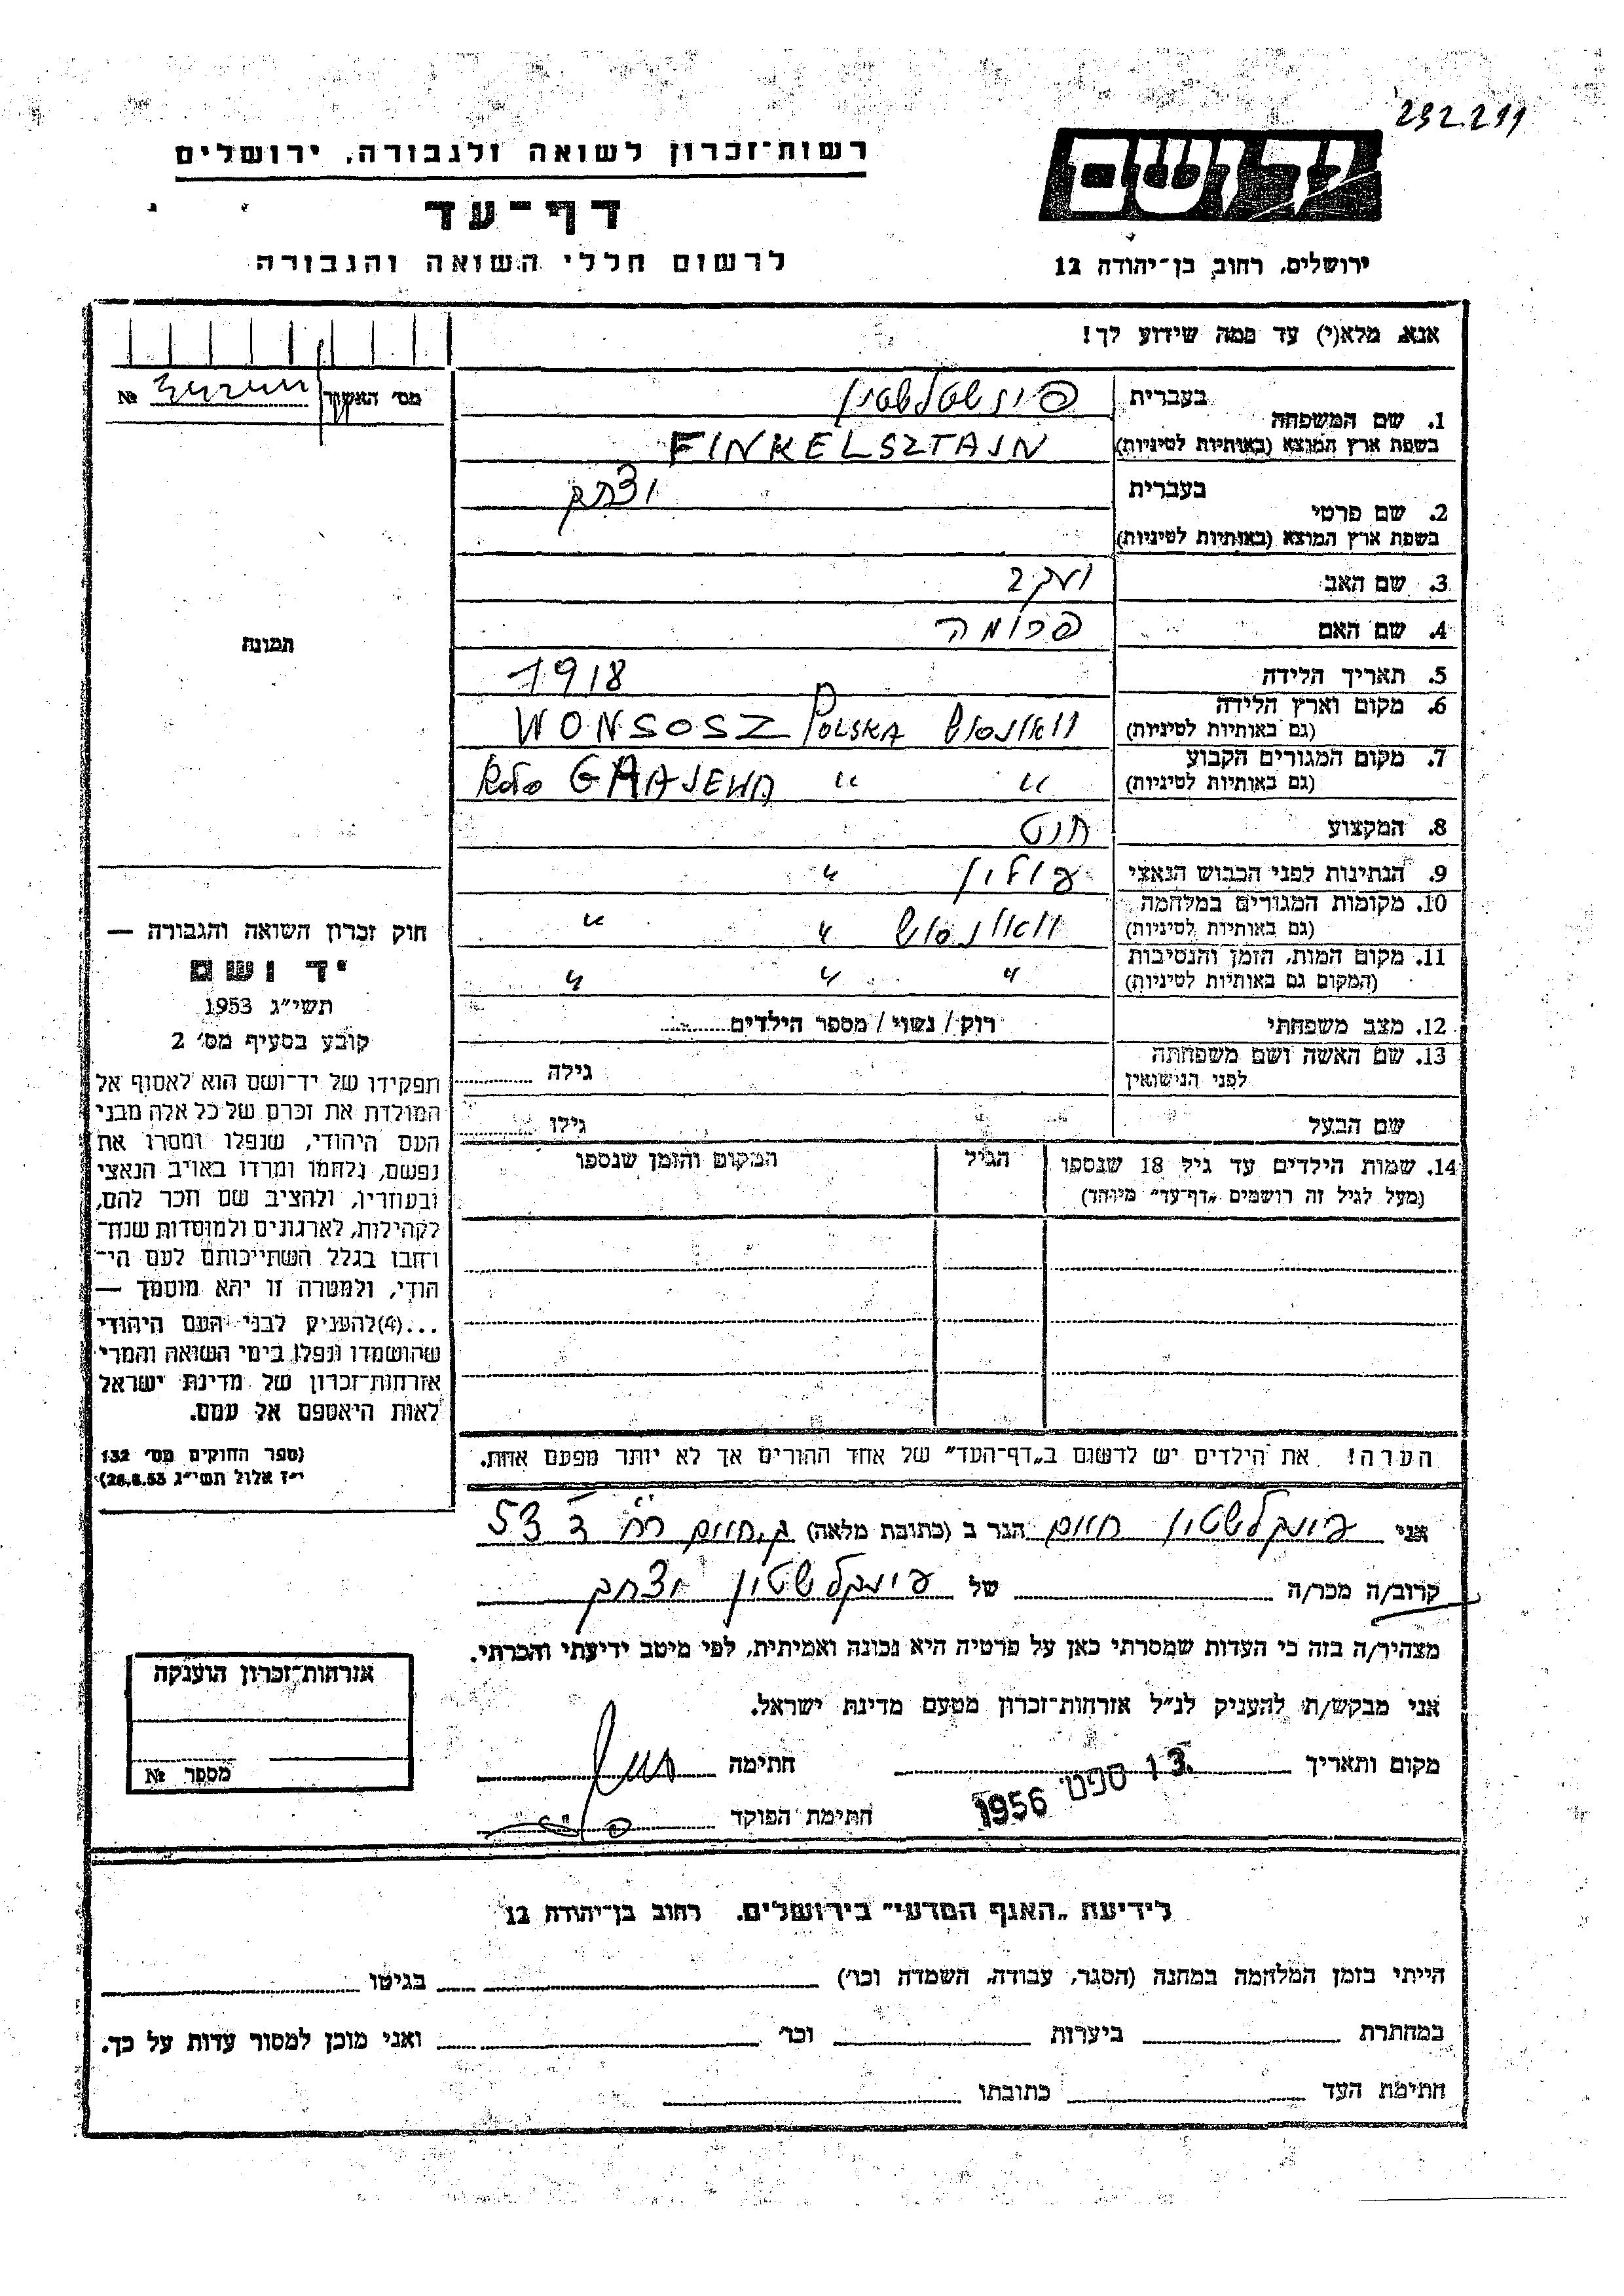 292.291
רשות־זכרון לשואה ולגבורה, ירושלים
יד ושם
דף־עד
לרשום חללי השואה והגבורה
ירושלים, רחוב בן־יהודה 12
אנא, מלא(י) עד כמה שידוע לך!
מס' האשור №
1. שם המשפחה בעברית
בשפת ארץ המוצא (באותיות לטיניות) FINKELSZTAJN
2. שם פרטי בעברית יצחק
בשפת ארץ המוצא (באותיות לטיניות)
3. שם האב יעקב
4. שם האם פרומה
תמונה
5. תאריך הלידה 1918
6. מקום וארץ הלידה WONSOSZ POLSKA וואנסוש
(גם באותיות לטיניות)
7. מקום המגורים הקבוע " "
(גם באותיות לטיניות)
8. המקצוע
9. הנתינות לפני הכבוש הנאצי פולין "
10. מקומות המגורים במלחמה וואנסוש " "
(גם באותיות לטיניות)
11. מקום המות, הזמן והנסיבות " " "
(המקום גם באותיות לטיניות)
12. מצב משפחתי רוק / נשוי / מספר הילדים
13. שם האשה ושם משפחתה גילה
לפני הנישואין
שם הבעל גילו
14. שמות הילדים עד גיל 18 שנספו הגיל המקום והזמן שנספו
(מעל לגיל זה רושמים "דף־עד" מיוחד)
חוק זכרון השואה והגבורה —
יד ושם
תשי"ג 1953
קובע בסעיף מס' 2
תפקידו של יד־ושם הוא לאסוף אל
המולדת את זכרם של כל אלה מבני
העם היהודי, שנפלו ומסרו את
נפשם, נלחמו ומרדו באויב הנאצי
ובעוזריו, ולהציב שם וזכר להם,
לקהילות, לארגונים ולמוסדות שנח־
רבו בגלל השתייכותם לעם הי־
הודי, ולמטרה זו יהא מוסמך —
...(4)להעניק לבני העם היהודי
שהושמדו ונפלו בימי השואה והמרי
אזרחות־זכרון של מדינת ישראל
לאות היאספם אל עמם.
(ספר החוקים מס' 132
י"ז אלול תשי"ג 28.8.53)
הערה! את הילדים יש לרשום ב"דף־העד" של אחד ההורים אך לא יותר מפעם אחת.
אני פינקלשטיין חיים הגר ב (כתובת מלאה)
קרוב/ה מכר/ה של פינקלשטיין יצחק
מצהיר/ה בזה כי העדות שמסרתי כאן על פרטיה היא נכונה ואמיתית, לפי מיטב ידיעתי והכרתי.
אני מבקש/ת להעניק לנ"ל אזרחות־זכרון מטעם מדינת ישראל.
מקום ותאריך 13 ספט' 1956 חתימה
חתימת הפוקד
אזרחות־זכרון הוענקה
מספר №
לידיעת "האגף המדעי" בירושלים, רחוב בן־יהודה 12
הייתי בזמן המלחמה במחנה (הסגר, עבודה, השמדה וכו') בגיטו
במחתרת ביערות וכו' ואני מוכן למסור עדות על כך.
חתימת העד כתובתו